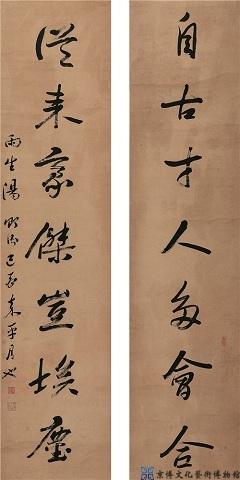 自古才人多會合
從来豪傑豈埃塵
雨生湯貽汾
京博文化藝術博物館